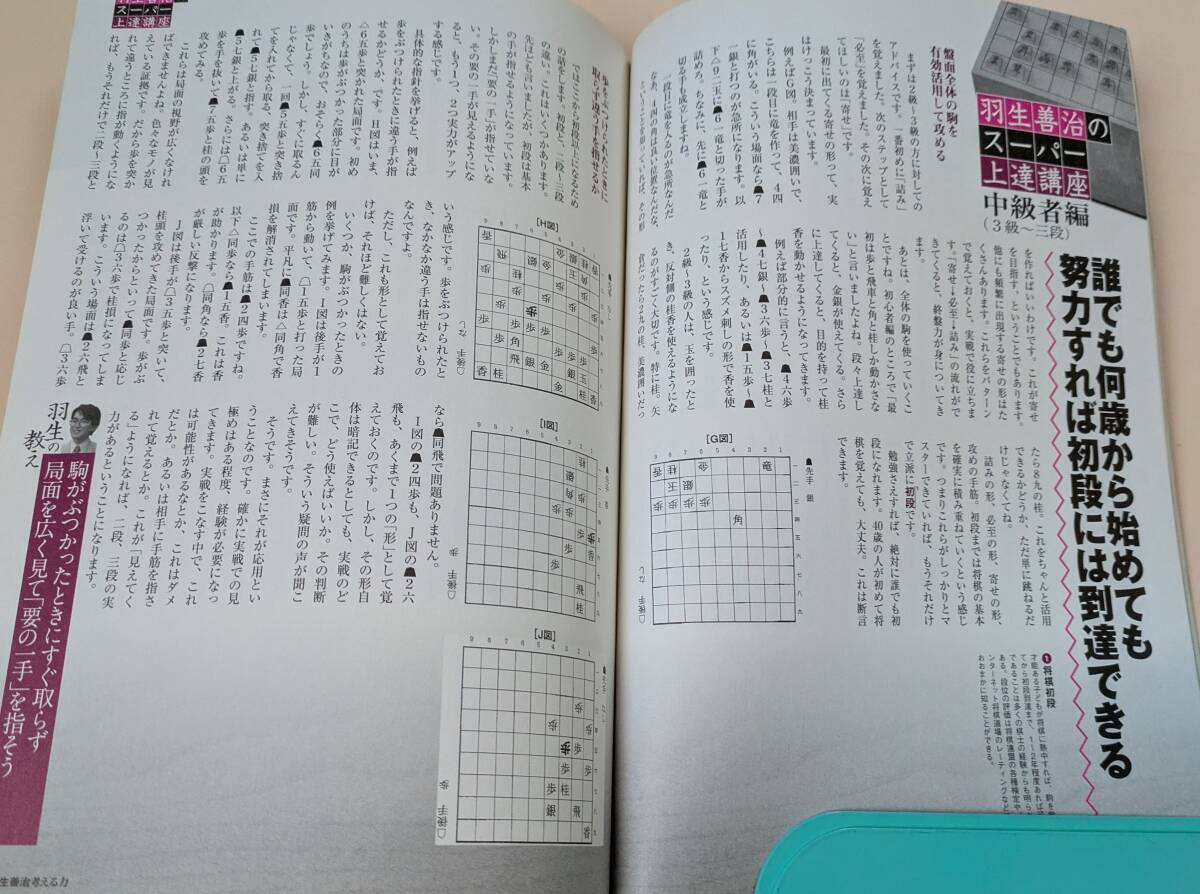 羽生善治の
スーパー
上達講座
中級者編
(3級〜三段)
誰でも何歳から始めても
努力すれば初段には到達できる
盤面全体の駒を
有効活用して攻める
まずは2級〜3級の方に対しての
アドバイスです。一番初めに「詰み」
を覚えました。次のステップとして
「必至」を覚えました。その次に覚え
てほしいのは「寄せ」です。
最初に出てくる寄せの形って、実
はけっこう決まっています。
例えばG図。相手は美濃囲いで、
こちらは一段目に竜を作って、4四
に角がいる。こういう場面なら☗7
一銀と打つのが急所になります。以
下△9二玉に☗6一竜と切った手が
詰めろ。ちなみに、先に☗6一竜と
切る手も成立しますね。
一段目に竜を入るのが急所なんだ
なあ、4四の角は良い位置なんだな、
を作ればいいわけです。これが寄せ
を目指す、ということでもあります。
他にも頻繁に出現する寄せの形はた
くさんあります。これらをパターン
で覚えておくと、実戦で役に立ちま
す。「寄せ→必至→詰み」の流れがで
きてくると、終盤力が身についてき
ます。
あとは、全体の駒を使っていくこ
とですね。初心者編のところで「最
初は歩と飛車と角と桂しか動かさな
い」と言いましたよね。段々上達し
てくると、金銀が使えてくる。さら
に上達してくると、目的を持って桂
香を動かせるようになってきます。
例えば部分的に言うと、☗4六歩
〜☗4七銀〜☗3六歩〜☗3七桂と
活用したり、あるいは☗1五歩〜☗
1七香からスズメ刺しの形で香を使
ったり、という感じです。
2級〜3級の人は、玉を囲ったと
き、反対側の桂香を使えるようにな
るのがすごく大切です。特に桂。矢
倉だったら2九の桂、美濃囲いだっ
たら8九の桂。これをちゃんと活用
できるかどうか、ただ単に跳ねるだ
けじゃなくてね。
詰みの形、必至の形、寄せの形、
攻めの手筋。初段までは将棋の基本
を確実に積み重ねていくという感じ
です。つまりこれらがしっかりとマ
スターできていれば、もうそれだけ
で立派に初段です。
勉強さえすれば、絶対に誰でも初
段になれます。40歳の人が初めて将
棋を覚えても、大丈夫。これは断言
できます。
[G図]
☗先手 銀
☖後手 なし
1 将棋初段
歩をぶつけられたときに
取らず違う手を指せるか
ではここから初段以上になるため
の話をします。初段と、二段、三段
の違い。これはいくつかあります。
先ほども言いましたが、初段は基本
の手が指せるようになっています。
しかしまだ「要の一手」が指せていな
い。その要の一手が見えるようにな
ると、もう1つ、2つ実力がアップ
する感じです。
具体的な指針を挙げると、例えば
歩をぶつけられたときに違う手が指
せるかどうか、です。H図はいま、
△6五歩と突かれた局面です。初め
のうちは歩がぶつかった部分に目が
いきがちなので、おそらく☗6五同
歩でしょう。しかし、すぐに取るん
じゃなくて、一回☗5五歩と突き捨
てを入れてから取る、突き捨てを入
れて☗5七銀と指す。あるいは単に
☗5七銀と上がる。さらには☖6五
歩を手抜いて☗7五歩と桂の頭を
攻めてみる。
これらは局面の視野が広くなけれ
ばできませんよね。色々なモノが見
えている証拠です。だから歩を突か
れて違うところに指が動くようにな
れば、もうそれだけで二段〜三段と
いう感じです。歩をぶつけられたと
き、なかなか違う手は指せないもの
なんですよ。
ただし、これも形として覚えてお
けば、それほど難しくはない。
いくつか、駒がぶつかったときの
例を挙げてみます。I図は後手が1
筋から動いて、☖1五歩と打った局
面です。平凡に☗同香は△同角で香
損を解消されてしまいます。
ここでの手筋は☗2四歩ですね。
以下△同歩なら☗1五香。これは香
が助かります。☖同角なら☗2七香
が厳しい反撃になります。
J図は後手が☖3五歩と突いて、
桂頭を攻めてきた局面です。歩がぶ
つかったからといって☗同歩と応じ
るのは☖3六歩で桂損になってしま
います。こういう場面は☗2六飛と
浮いて受けるのが良い手。☖3六歩
なら☗同飛で問題ありません。
I図の☗2四歩も、J図の☗2六
飛も、あくまで1つの「形」として覚
えておくのです。しかし、その形自
体は暗記できるとしても、実戦のど
こで、どう使えばいいか。その判断
が難しい。そういう疑問の声が聞こ
えてきそうです。
そうです。まさにそれが応用とい
うことなのです。確かに実戦での見
極めはある程度、経験が必要になっ
てきます。実戦をこなす中で、これ
は可能性があるなとか、これはダメ
だとか。あるいは相手に手筋を指さ
れて覚えるとか。これが「見えてく
る」ようになれば、二段、三段の実
力があるということになります。
[H図]
☖後手 なし
[I図]
☖後手 歩
[J図]
☗先手 なし
☖後手 歩
羽生の
教え
駒がぶつかったときにすぐ取らず
局面を広く見て「要の一手」を指そう
生善治考える力